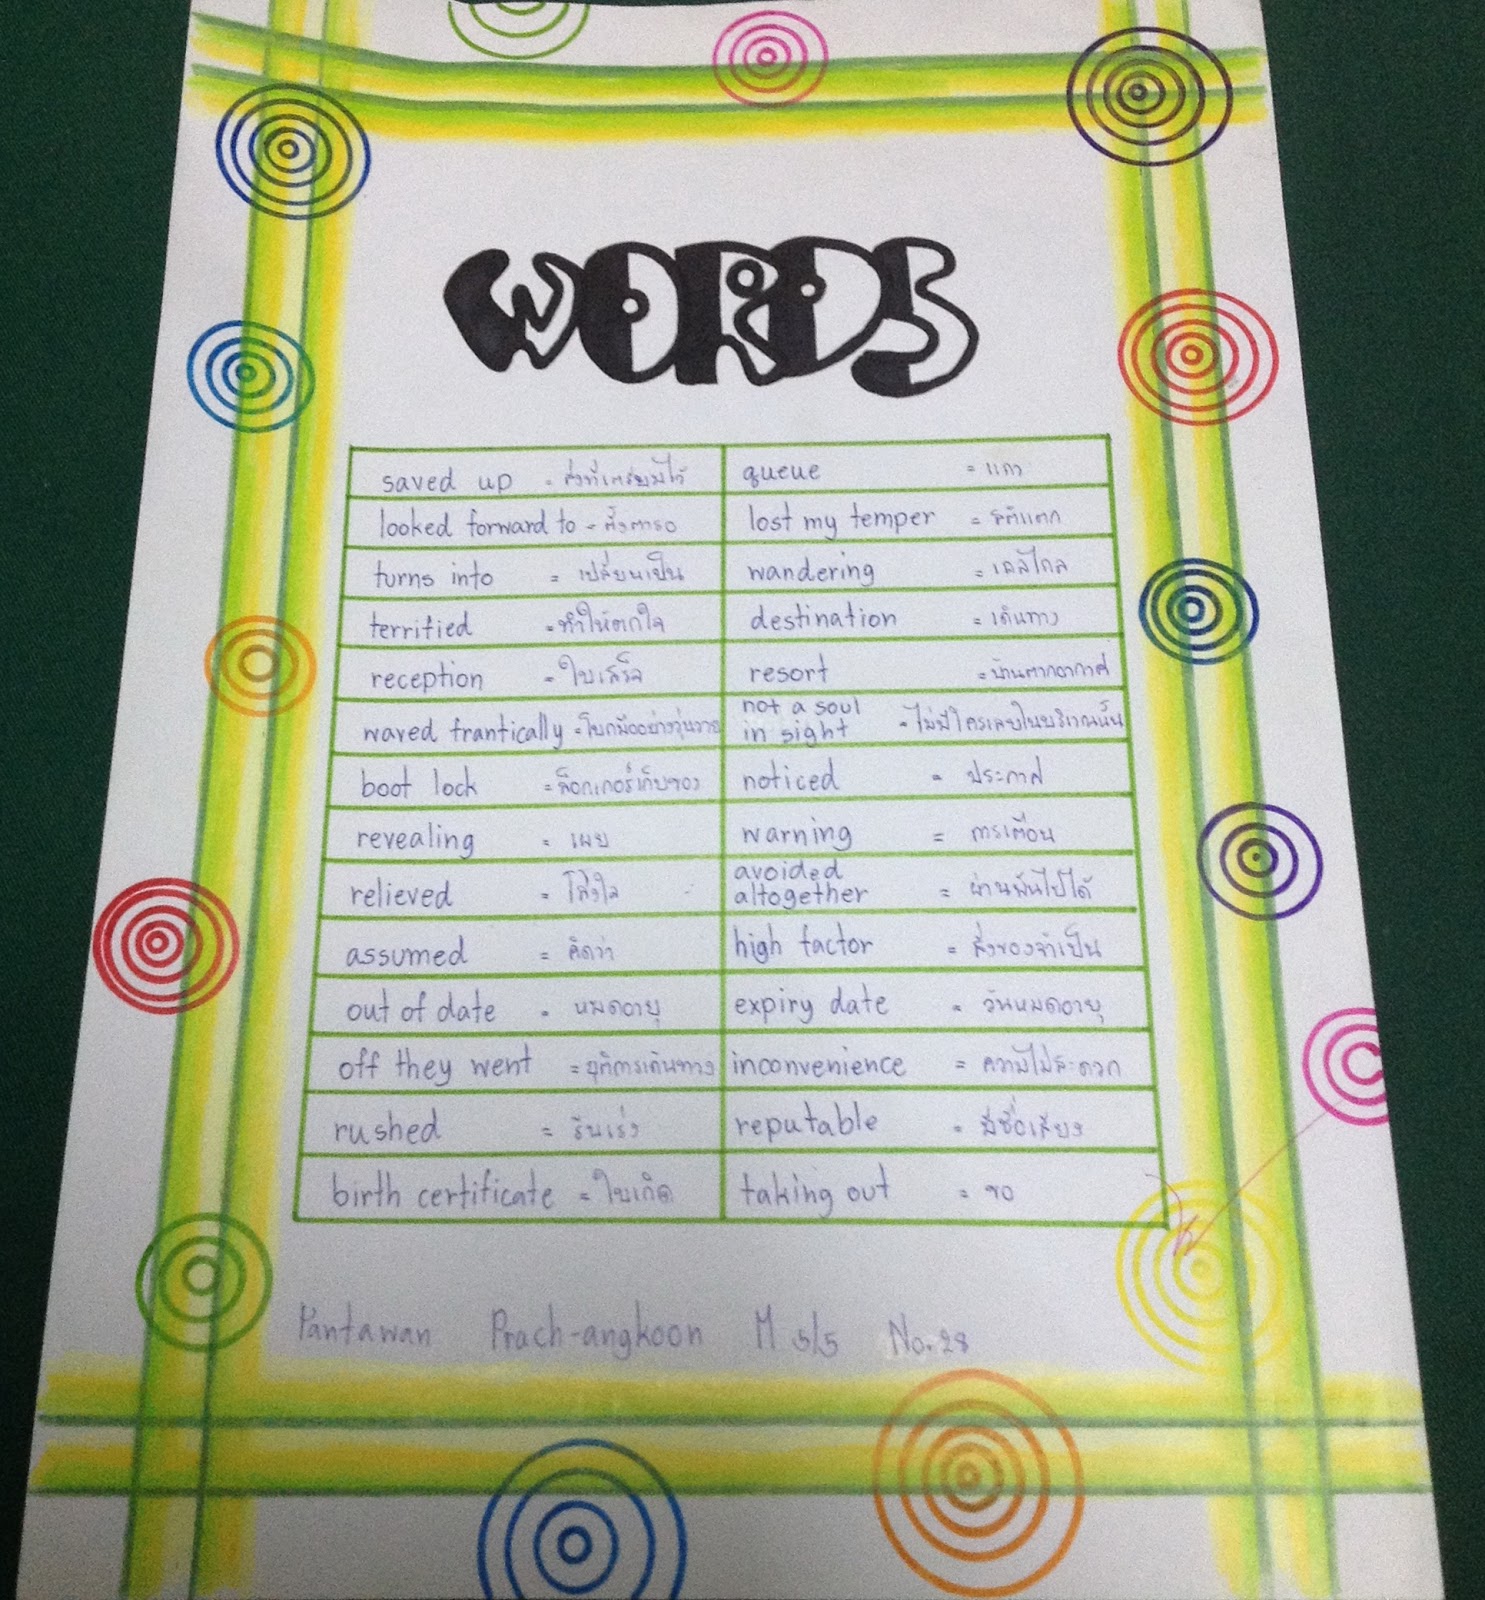 WORDS
saved up = สิ่งที่เตรียมไว้ queue = แถว
looked forward to = ตั้งตารอ lost my temper = สติแตก
turns into = เปลี่ยนเป็น wandering = เถลไถล
terrified = ทำให้ตกใจ destination = เดินทาง
reception = ใบเสร็จ resort = บ้านตากอากาศ
waved frantically = โบกมืออย่างวุ่นวาย not a soul in sight = ไม่มีใครเลยในบริเวณนั้น
boot lock = ล็อกเกอร์เก็บของ noticed = ประกาศ
revealing = เผย warning = การเตือน
relieved = โล่งใจ avoided altogether = ผ่านพ้นไปได้
assumed = คิดว่า high factor = สิ่งของจำเป็น
out of date = หมดอายุ expiry date = วันหมดอายุ
off they went = ยุติการเดินทาง inconvenience = ความไม่สะดวก
rushed = รีบเร่ง reputable = มีชื่อเสียง
birth certificate = ใบเกิด taking out = ขอ
Pantawan Prach-angkoon M 5/5 No.28